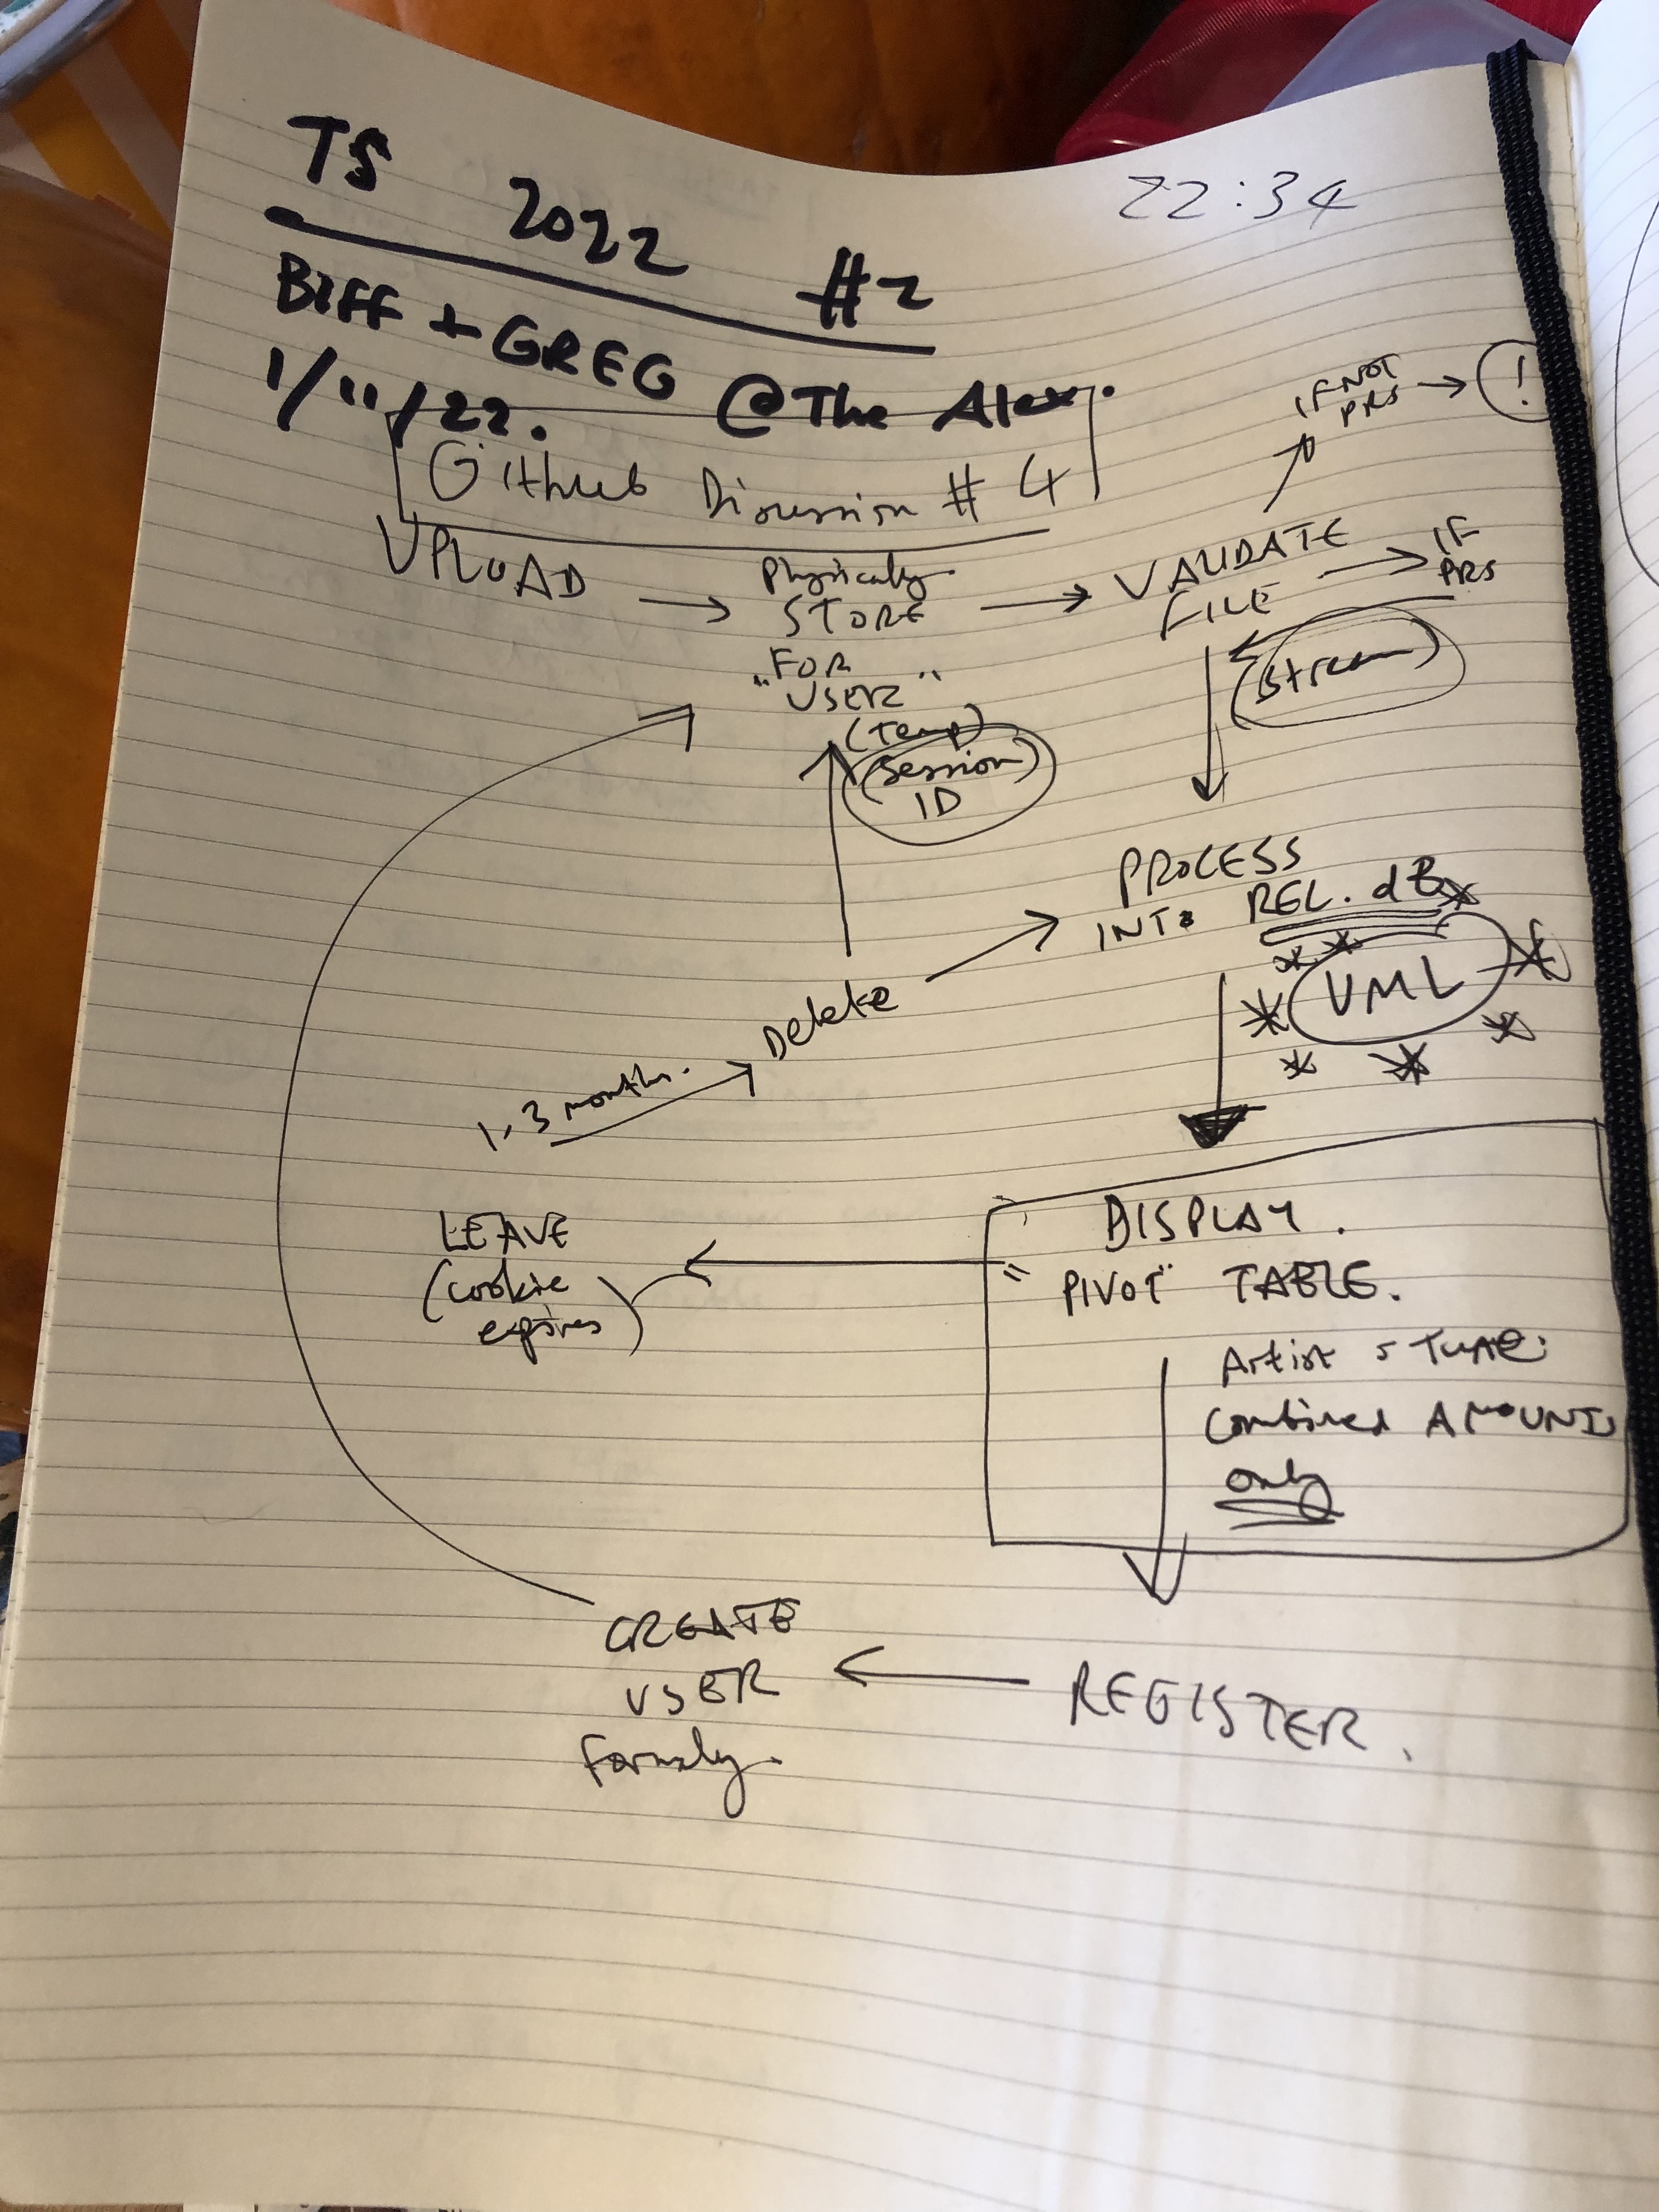 TS 2022 #2
22:34
Biff + GREG @The Alex.
1/11/22.
Github Discussion #4
IF NOT
PRS
!
UPLOAD
Physically
STORE
"FOR
USER"
(Temp)
(Session)
ID
VALIDATE
FILE
IF
PRS
(Stream)
PROCESS
INTO REL. dB
UML
Delete
1-3 months.
LEAVE
(cookie
expires)
DISPLAY.
"PIVOT" TABLE.
Artist & Tune:
Combined AMOUNTS
only
REGISTER.
CREATE
USER
formaly.